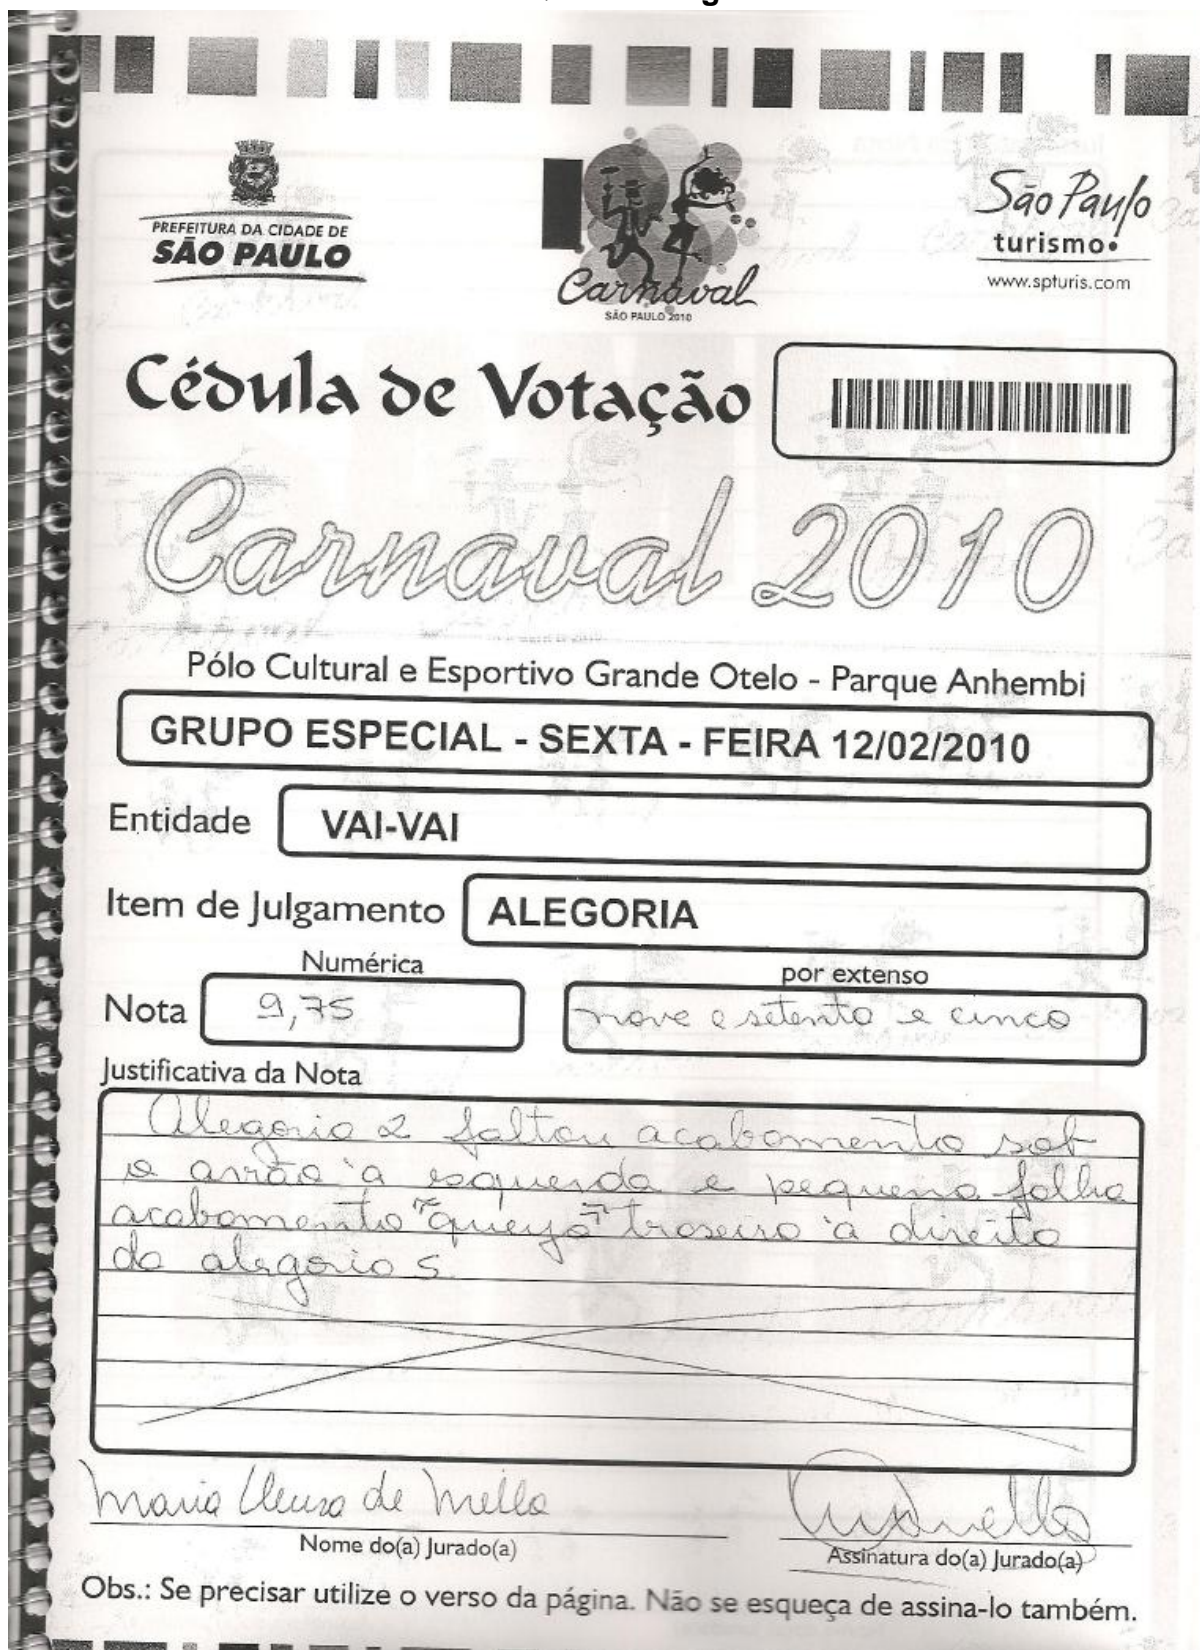 PREFEITURA DA CIDADE DE
SÃO PAULO
Carnaval
SÃO PAULO 2010
São Paulo
turismo
www.spturis.com
Cédula de Votação
Carnaval 2010
Pólo Cultural e Esportivo Grande Otelo - Parque Anhembi
GRUPO ESPECIAL - SEXTA - FEIRA 12/02/2010
Entidade VAI-VAI
Item de Julgamento ALEGORIA
Numérica por extenso
Nota 9,75 nove e setenta e cinco
Justificativa da Nota
Alegoria 2 faltou acabamento sob
o avião à esquerda e pequena falha
acabamento "queijo" traseiro à direita
da alegoria 5
Maria Cleusa de Mello
Nome do(a) Jurado(a)
Assinatura do(a) Jurado(a)
Obs.: Se precisar utilize o verso da página. Não se esqueça de assina-lo também.